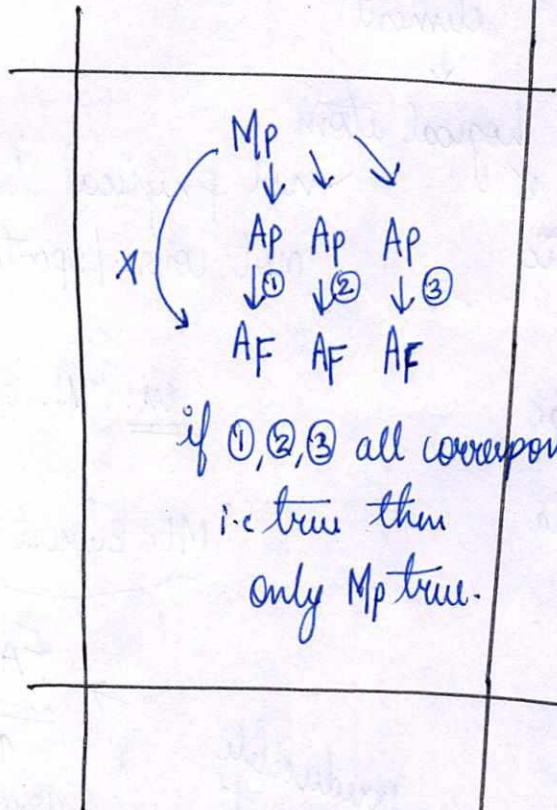 Mp
Ap Ap Ap
x ① ② ③
AF AF AF
if ①,②,③ all correspon
i.e true then
only Mp true.